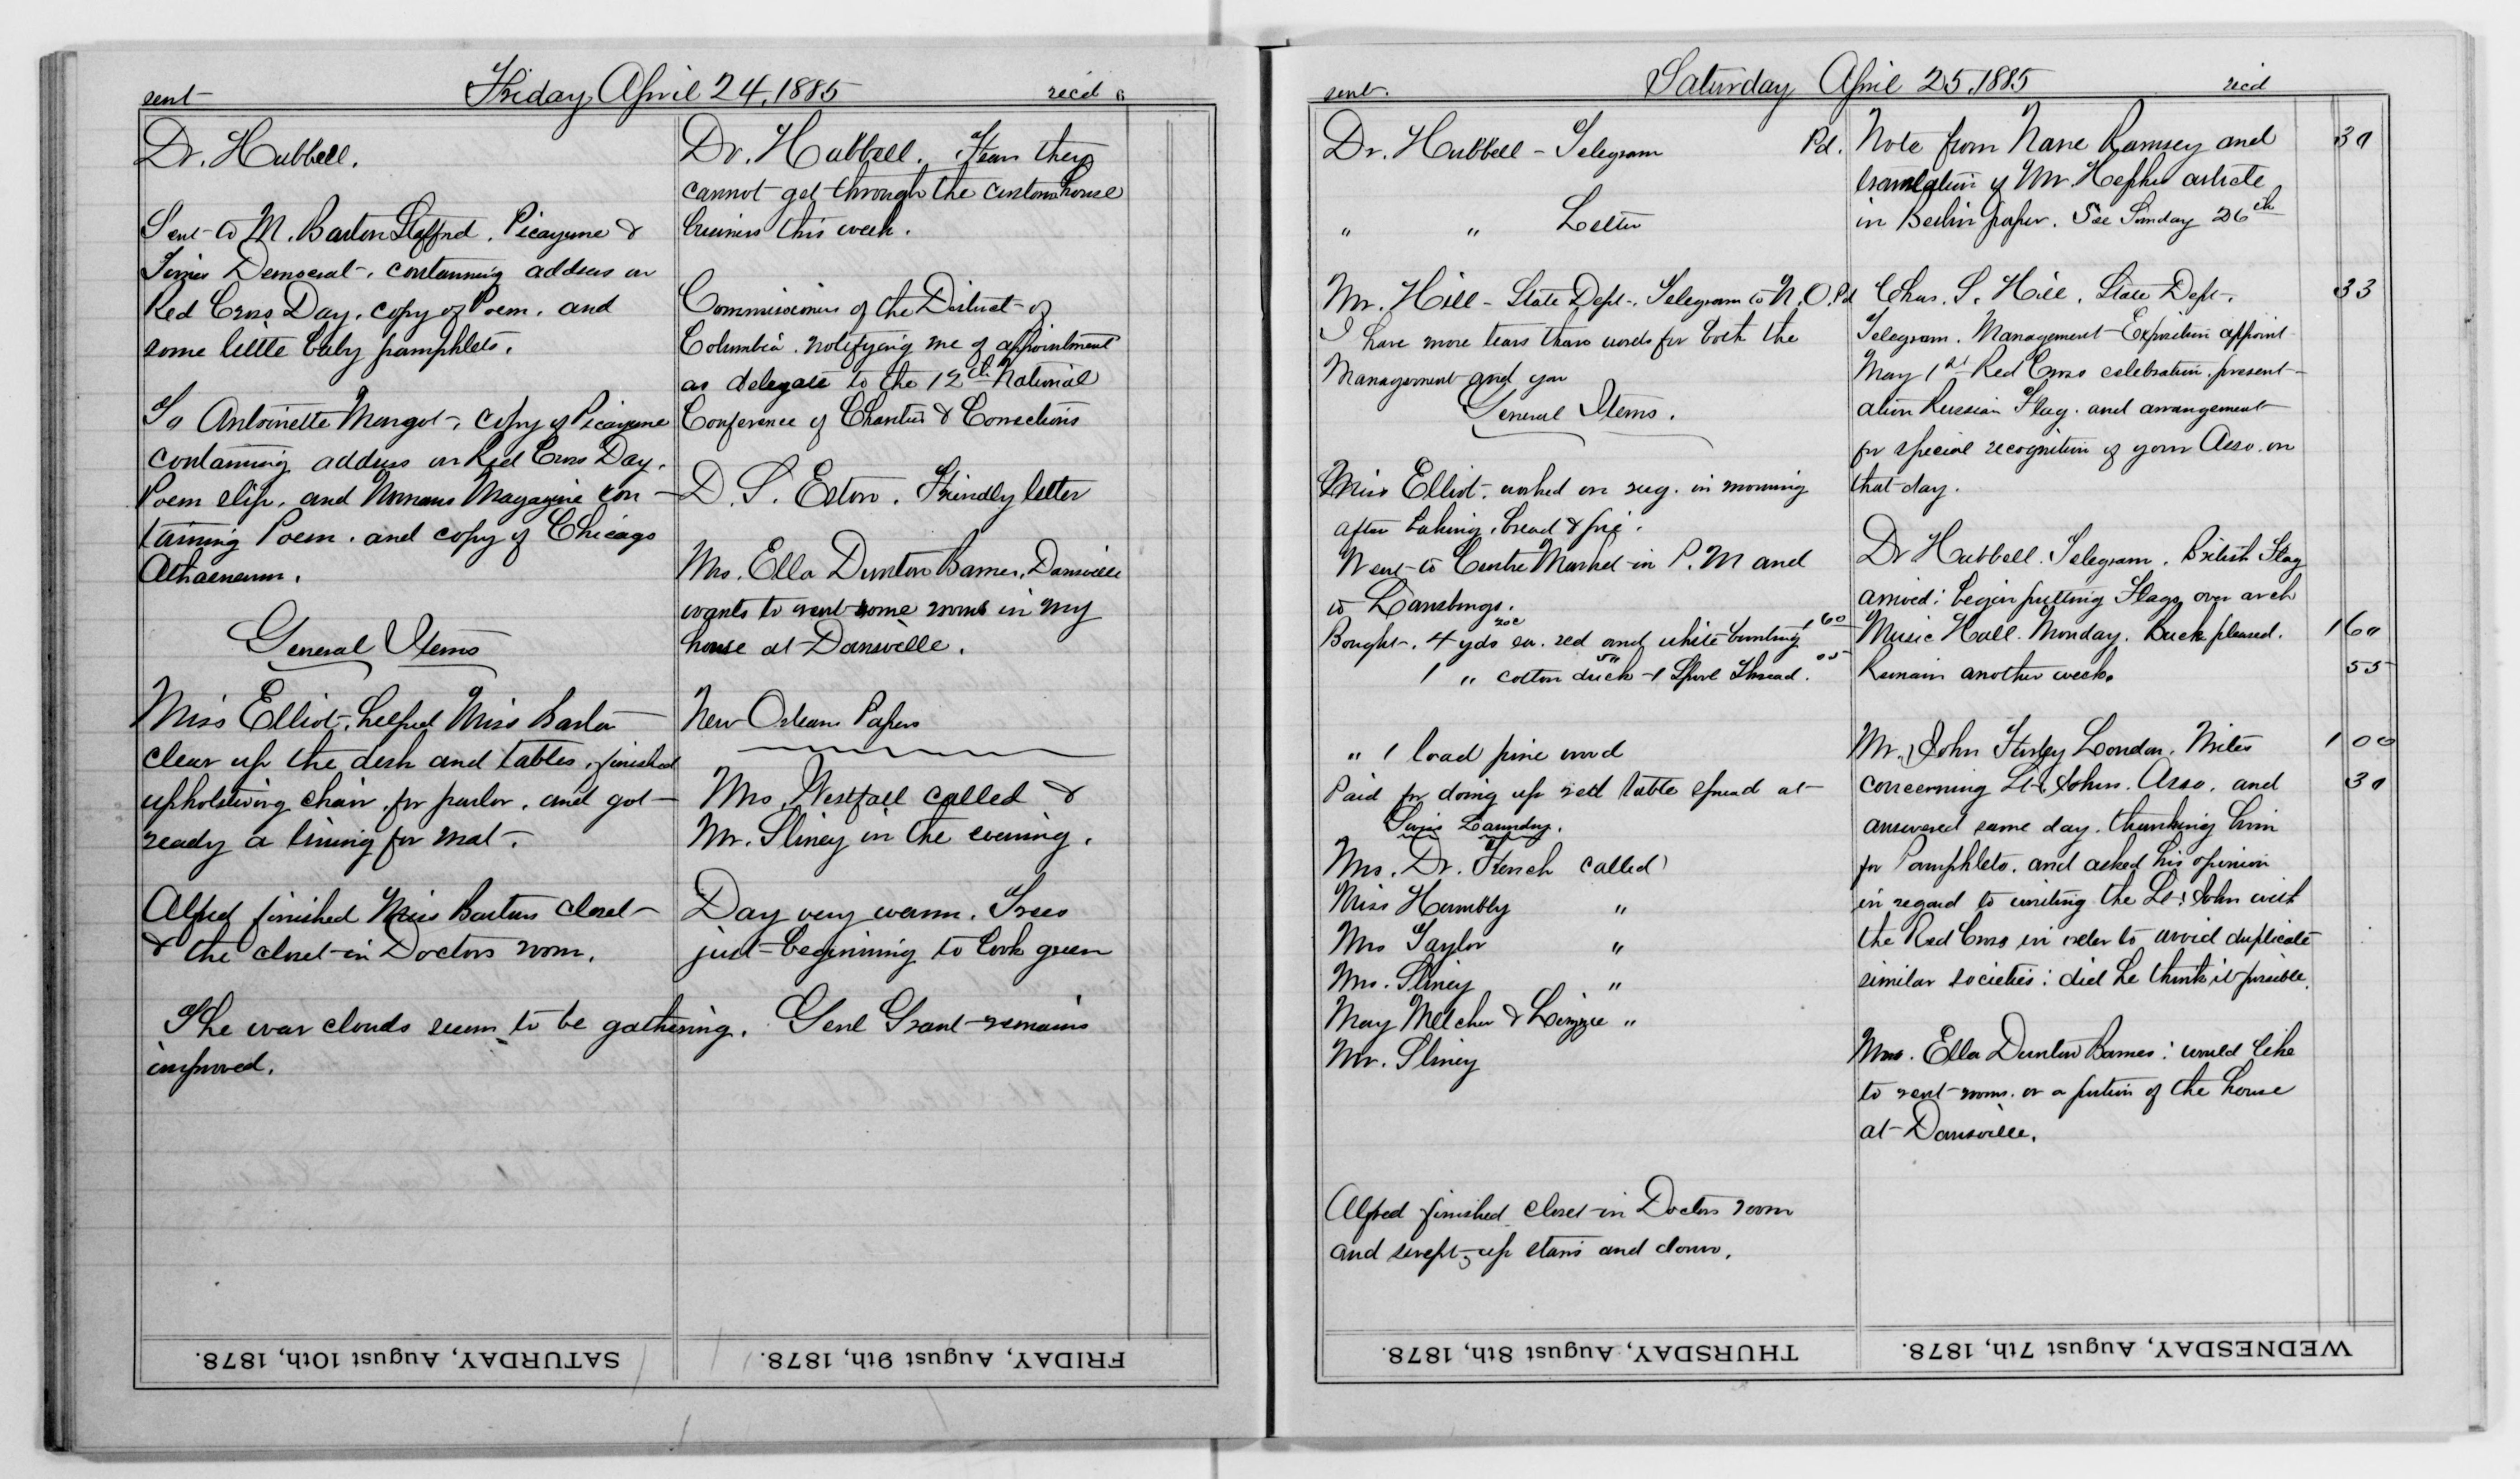 sent Friday April 24, 1885 recd
Dr. Hubbell.
Sent to M. Barton Stafford. Picayune &
Times Democrat. containing address on
Red Cross Day. copy of Poem. and
some little baby pamphlets.
To Antoinette Margot. copy of Picayune
containing address on Red Cross Day.
Poem slip. and Womans Magazine con-
taining Poem. and copy of Chicago
Athaeneum.
General Items
Miss Elliot. helped Miss Barton
clear up the desk and tables, finished
upholstering chair for parlor. and got
ready a lining for mat.
Alfred finished Miss Bartons closet
& the closet in Doctors room.
Dr. Hubbell. Fears they
cannot get through the custom house
business this week.
Commissioners of the District of
Columbia. notifying me of appointment
as delegate to the 12th National
Conference of Charities & Corrections
D. S. Friendly letter
Mrs. Ella Dunton Barnes. Dansville
wants to rent some rooms in my
house at Dansville.
New Orleans Papers
Mrs. Westfall called &
Mr. Sliney in the evening.
Day very warm. Trees
just beginning to look green
The war clouds seem to be gathering. Genl Grant remains
improved.
SATURDAY, August 10th, 1878.
FRIDAY, August 9th, 1878.
sent. Saturday April 25, 1885 recd
Dr. Hubbell - Telegram Pd.
" " Letter
Mr. Hill - State Dept. Telegram to N.O. Pd
I have more tears than words for both the
Management and you
General Items.
Miss Elliot. worked on rug. in morning
after baking. bread & pie.
Went to Centre Market in P.M and
to Lansburgs.
Bought. 4 yds ea. red and white bunting 20c 1 60
1 " cotton duck 1 Spool Thread. 50 05
" 1 load pine wood
Paid for doing up red table spread at
Swiss Laundry.
Mrs. Dr. French called
Miss Hambly "
Mrs Taylor "
Mrs. Sliney "
May Melcher & Lizzie "
Mr. Sliney
Alfred finished closet in Doctors room
and swept up stairs and down.
Note from Nane Ramsey and 30
translation of Mr. article
in Berlin paper. See Sunday 26th
Chas. S. Hill. State Dept. 33
Telegram. Management Exposition appoint
May 1st Red Cross celebration. present-
ation Russian Flag. and arrangement
for special recognition of your Asso. on
that day.
Dr Hubbell. Telegram. British Flag
arrived: begin putting Flags over arch
Music Hall. Monday. Buck pleased. 1 60
Remain another week. 55
Mr. John Furley London. Writes 1 00
concerning St. Johns. Asso. and 30
answered same day. thanking him
for Pamphlets. and asked his opinion
in regard to uniting the St. John with
the Red Cross in order to avoid duplicate
similar societies: did he think it possible.
Mrs. Ella Dunton Barnes: would like
to rent rooms. or a portion of the house
at Dansville.
THURSDAY, August 8th, 1878.
WEDNESDAY, August 7th, 1878.